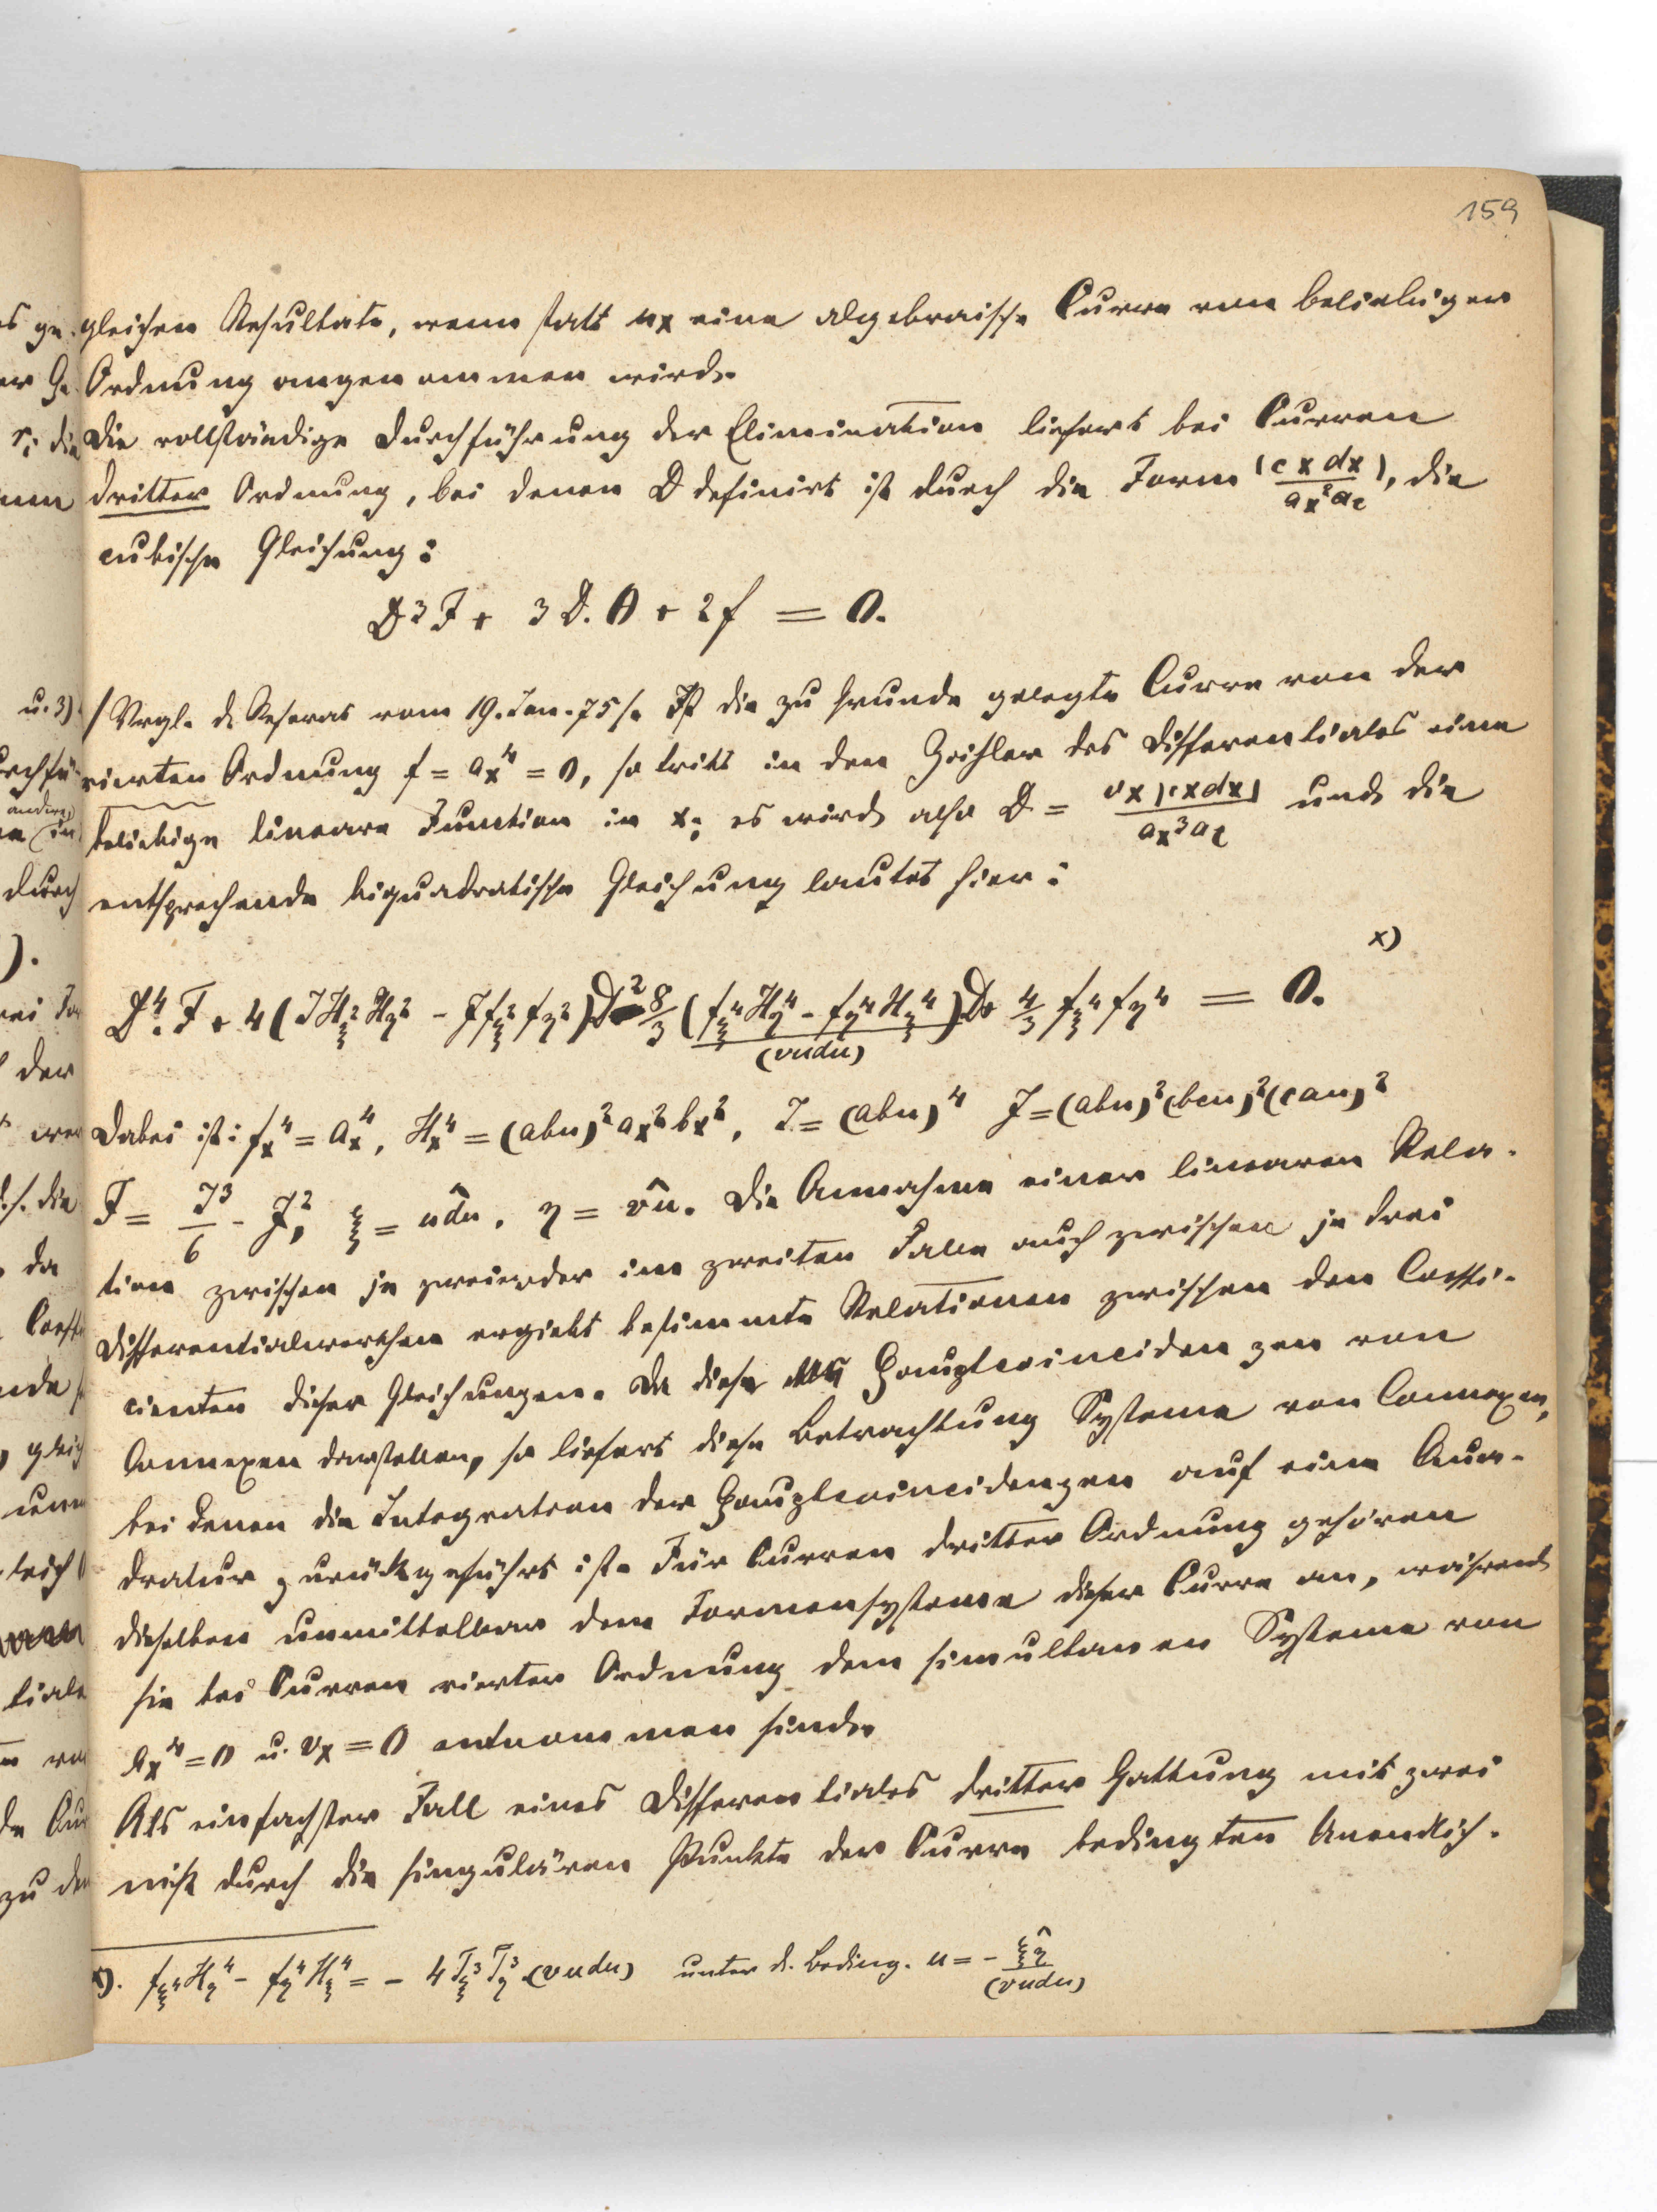 159
gleichen Resultate, wenn statt ux eine algebraische Curve von beliebiger
Ordnung angenommen wird.
Die vollständige Durchführung der Elimination liefert bei Curven
dritter Ordnung, bei denen D definirt ist durch die Form (c x dx) / ax²ac, die
cubische Gleichung:
D³F + 3 D. Θ + 2f = 0.
/Vrgl. d. Referat vom 19. Jan. 75/. Ist die zu Grunde gelegte Curve von der
vierten Ordnung f = ax⁴ = 0, so tritt in den Zähler des Differentiales eine
beliebige lineare Function in x; es wird also D = vx (cxdx) / ax³ac und die
entsprechende biquadratische Gleichung lautet hier:
D⁴. F + 4 (J Hξ² Hη² - J fξ² fη²) D² - 8/3 (fξ⁴ Hη⁴ - fη⁴ Hξ⁴) / (vudu) D + 4/3 fξ⁴ fη⁴ = 0. x)
Dabei ist: fx⁴ = ax⁴, Hx⁴ = (abu)² ax² bx², J = (abu)⁴ J = (abu)² (bcu)² (cau)²
F = J³/6 - J², ξ = udu, η = vu. Die Annahme einer linearen Rela-
tion zwischen je zwei oder im zweiten Falle auch zwischen je drei
Differentialwerthen ergiebt bestimmte Relationen zwischen den Coeffi-
cienten dieser Gleichungen. Da diese Hauptcoincidenzen von
Connexen darstellen, so liefert diese Betrachtung Systeme von Connexen,
bei denen die Integration der Hauptcoincidenzen auf eine Qua-
dratur zurückgeführt ist. Für Curven dritter Ordnung gehören
dieselben unmittelbar dem Formensysteme dieser Curve an, während
sie bei Curven vierter Ordnung dem simultanen Systeme von
ax⁴ = 0 u. vx = 0 entnommen sind.
Als einfachster Fall eines Differentiales dritter Gattung mit zwei
nicht durch die singulären Punkte der Curve bedingten Unendlich-
x). fξ⁴ Hη⁴ - fη⁴ Hξ⁴ = - 4 Tξ³ Tη³ (vudu) unter d. Beding. u = - ξη / (vudu)